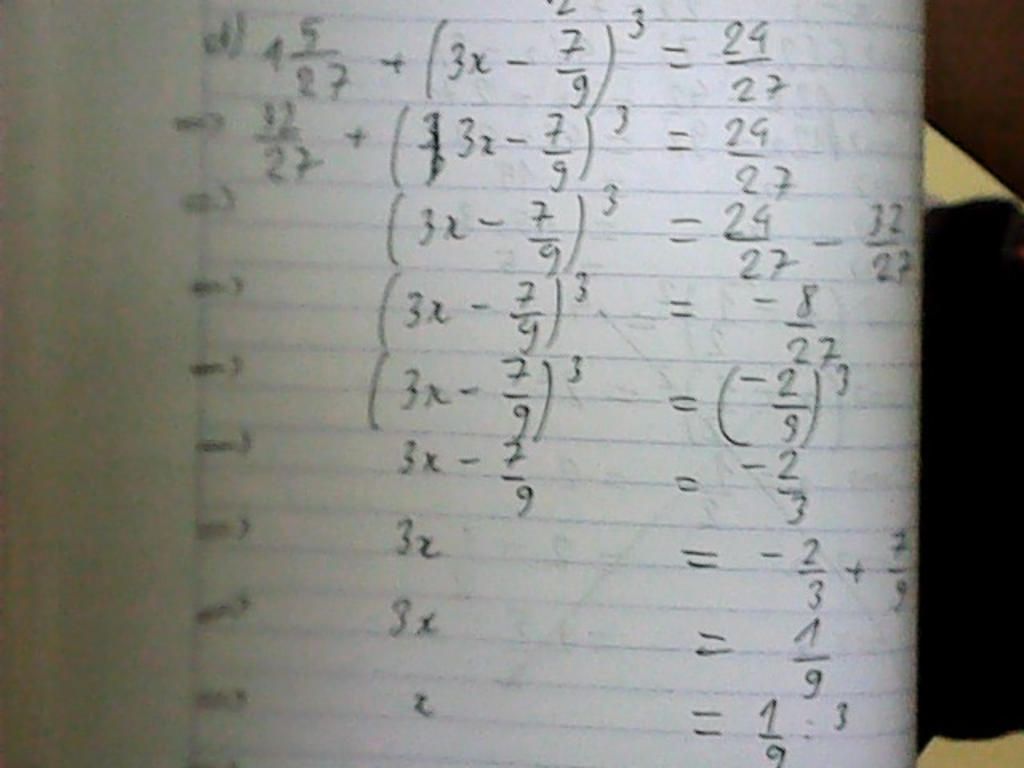 d) 1 5/27 + (3x - 7/9)^3 = 24/27
=> 32/27 + (3x - 7/9)^3 = 24/27
=> (3x - 7/9)^3 = 24/27 - 32/27
=> (3x - 7/9)^3 = -8/27
=> (3x - 7/9)^3 = (-2/3)^3
=> 3x - 7/9 = -2/3
=> 3x = -2/3 + 7/9
=> 3x = 1/9
=> x = 1/9 : 3